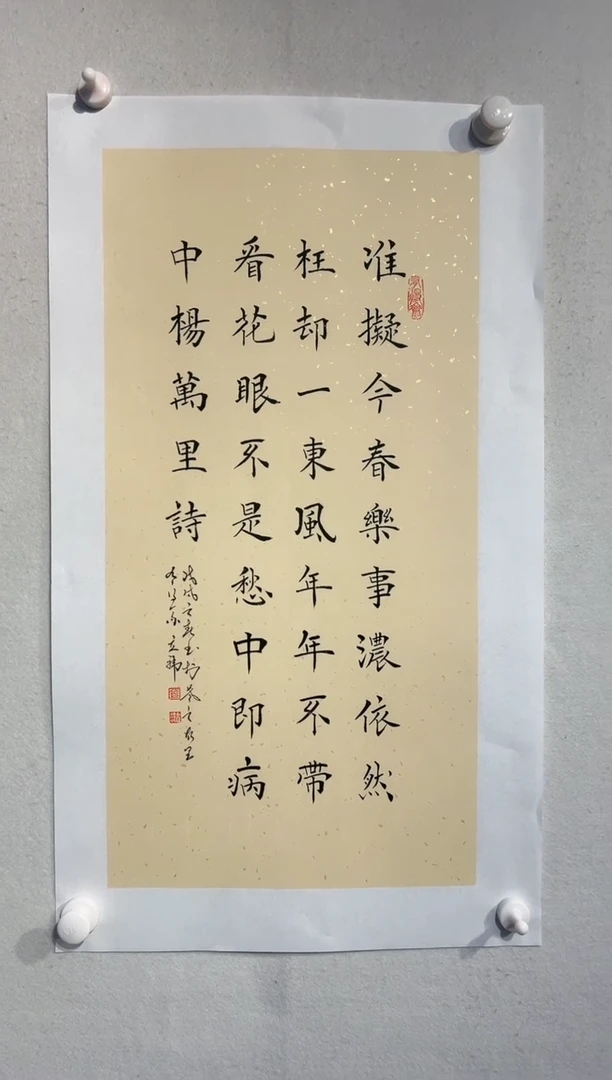 准擬今春樂事濃依然
枉却一東風年年不帶
看花眼不是愁中即病
中楊萬里詩